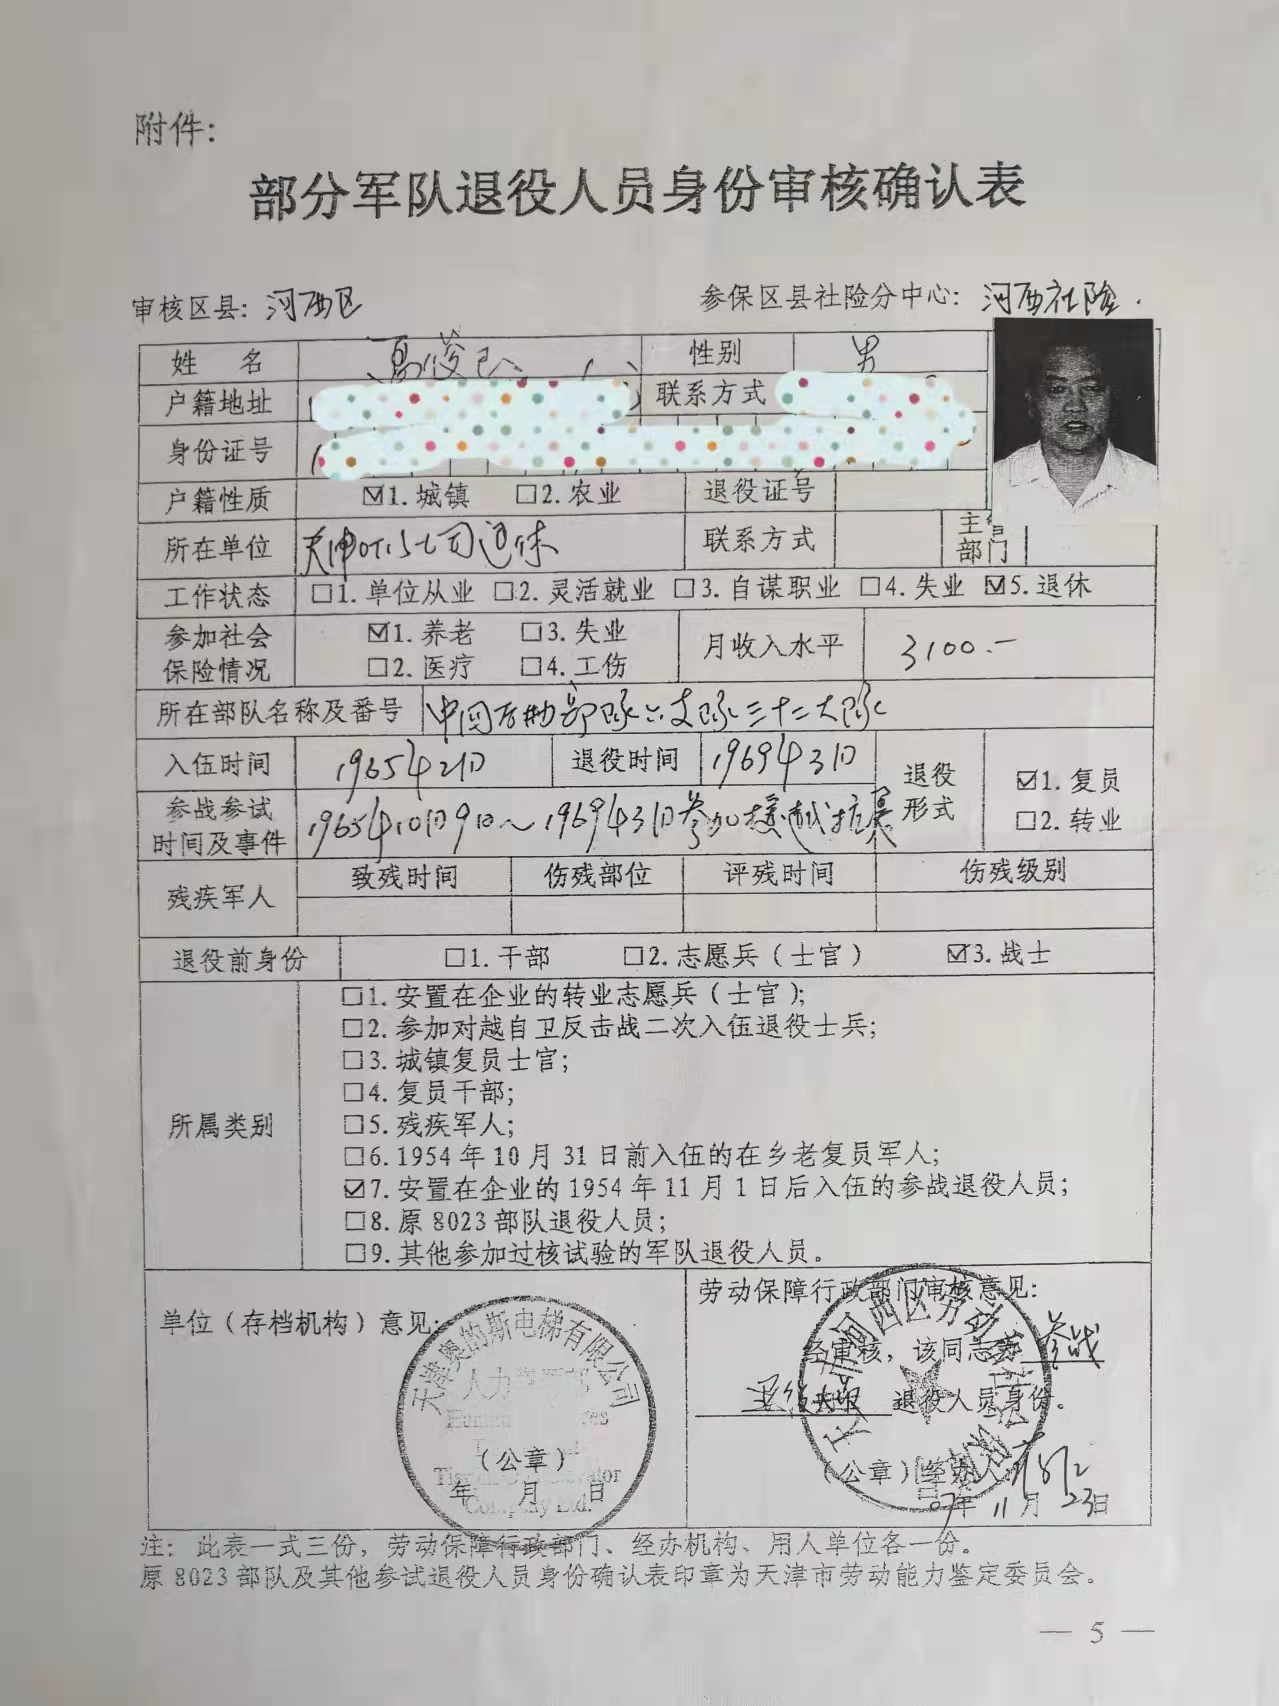 附件:
部分军队退役人员身份审核确认表
审核区县: 河西区 参保区县社险分中心: 河西社险.
姓 名 性别 男
户籍地址 联系方式
身份证号
户籍性质 ☑1. 城镇 □2. 农业 退役证号
所在单位 退休 联系方式 主管部门
工作状态 □1. 单位从业 □2. 灵活就业 □3. 自谋职业 □4. 失业 ☑5. 退休
参加社会 ☑1. 养老 □3. 失业 月收入水平 3100.-
保险情况 □2. 医疗 □4. 工伤
所在部队名称及番号 中国后勤部队六支队三十二大队
入伍时间 1965年2月 退役时间 1969年3月 退役形式 ☑1. 复员
□2. 转业
参战参试 1965年10月9日~1969年3月参加援越抗美
时间及事件
残疾军人 致残时间 伤残部位 评残时间 伤残级别
退役前身份 □1. 干部 □2. 志愿兵（士官） ☑3. 战士
所属类别
□1. 安置在企业的转业志愿兵（士官）;
□2. 参加对越自卫反击战二次入伍退役士兵;
□3. 城镇复员士官;
□4. 复员干部;
□5. 残疾军人;
□6. 1954 年 10 月 31 日前入伍的在乡老复员军人;
☑7. 安置在企业的 1954 年 11 月 1 日后入伍的参战退役人员;
□8. 原 8023 部队退役人员;
□9. 其他参加过核试验的军队退役人员。
单位（存档机构）意见:
天津奥的斯电梯有限公司
人力资源部
（公章）
年 月 日
劳动保障行政部门审核意见:
经审核，该同志为 参战
退役人员身份。
（公章）经办人
07年 11月 23日
注: 此表一式三份，劳动保障行政部门、经办机构、用人单位各一份。
原 8023 部队及其他参试退役人员身份确认表印章为天津市劳动能力鉴定委员会。
— 5 —